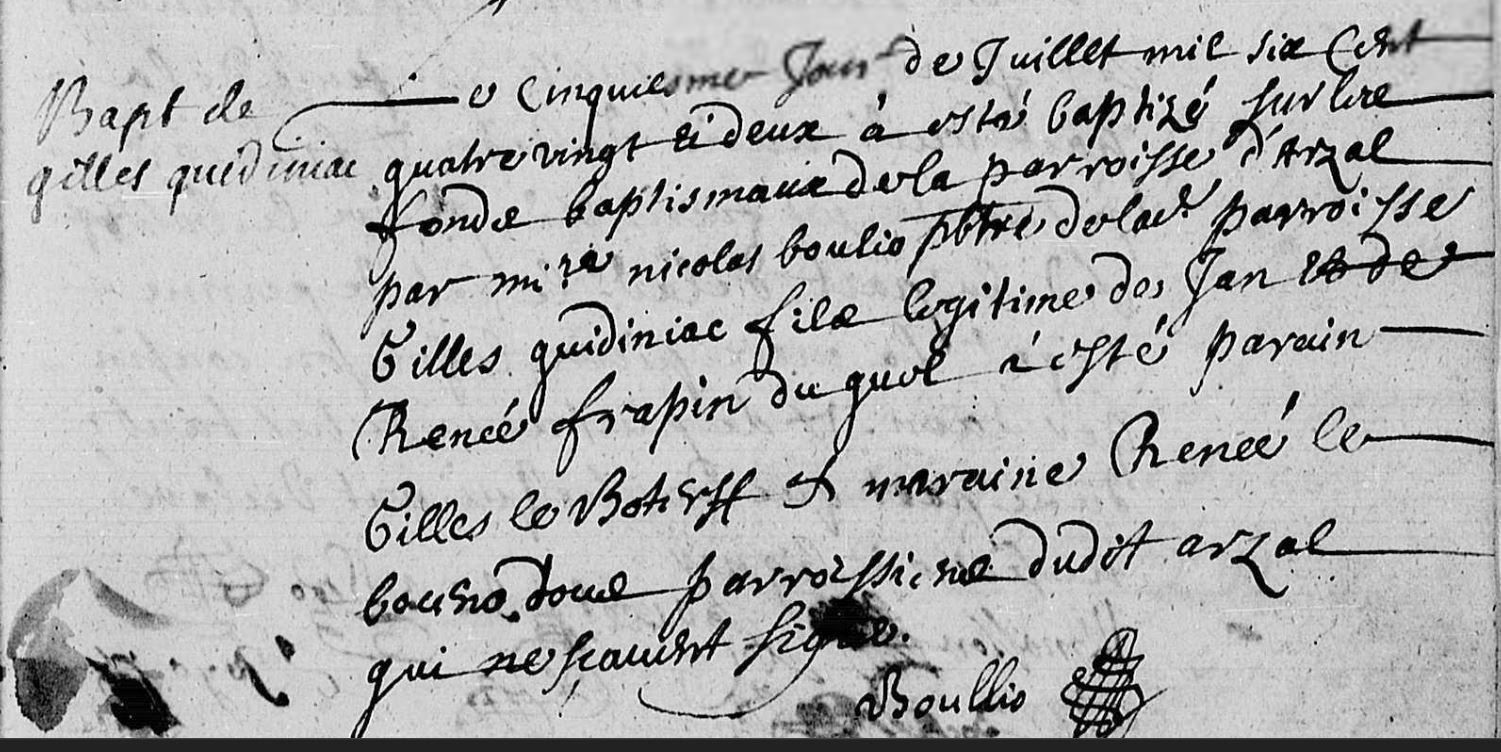 Bapt de
gilles quidiniac
e Cinquiesme Jour de Juillet mil six Cent
quatre vingt et deux à esté baptizé sur lre
fonde baptismaux de la parroisse d'Arzal
par mire nicolas boulio pbtre de lad. parroisse
Gilles quidiniac filx legitime de Jan et de
Renée frapin du quel à esté parain
Gilles le Boterff et maraine Renée le
tous parroissiens dudit arzal
qui ne scauent signe.
Boullio